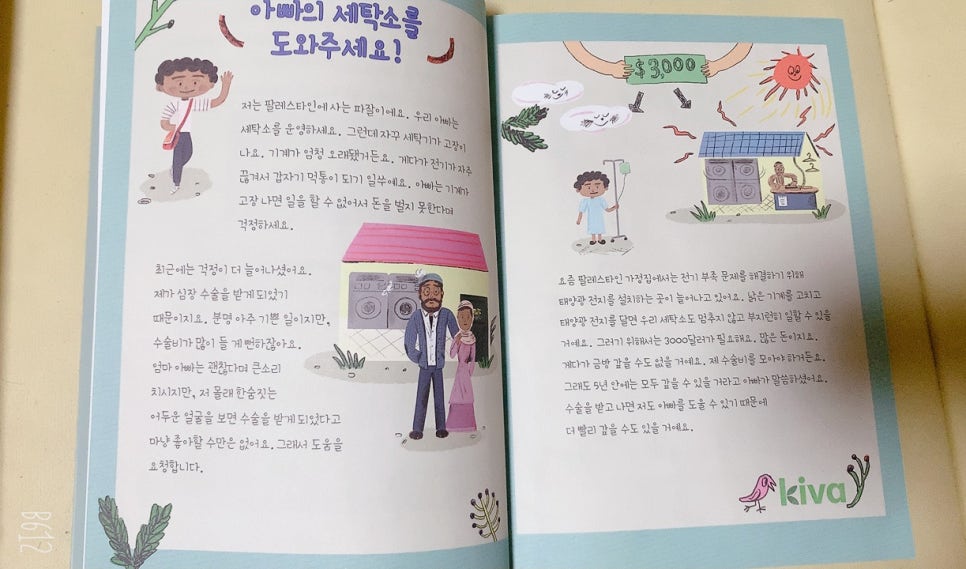 아빠의 세탁소를
도와주세요!
저는 팔레스타인에 사는 파질이에요. 우리 아빠는
세탁소를 운영하세요. 그런데 자꾸 세탁기가 고장이
나요. 기계가 엄청 오래됐거든요. 게다가 전기가 자주
끊겨서 갑자기 먹통이 되기 일쑤예요. 아빠는 기계가
고장 나면 일을 할 수 없어서 돈을 벌지 못한다며
걱정하세요.
최근에는 걱정이 더 늘어나셨어요.
제가 심장 수술을 받게 되었기
때문이지요. 분명 아주 기쁜 일이지만,
수술비가 많이 들 게 뻔하잖아요.
엄마 아빠는 괜찮다며 큰소리
치시지만, 저 몰래 한숨짓는
어두운 얼굴을 보면 수술을 받게 되었다고
마냥 좋아할 수만은 없어요. 그래서 도움을
요청합니다.
$3,000
요즘 팔레스타인 가정집에서는 전기 부족 문제를 해결하기 위해
태양광 전지를 설치하는 곳이 늘어나고 있어요. 낡은 기계를 고치고
태양광 전지를 달면 우리 세탁소도 멈추지 않고 부지런히 일할 수 있을
거예요. 그러기 위해서는 3000달러가 필요해요. 많은 돈이지요.
게다가 금방 갚을 수도 없을 거예요. 제 수술비를 모아야 하거든요.
그래도 5년 안에는 모두 갚을 수 있을 거라고 아빠가 말씀하셨어요.
수술을 받고 나면 저도 아빠를 도울 수 있기 때문에
더 빨리 갚을 수도 있을 거예요.
kiva
B612